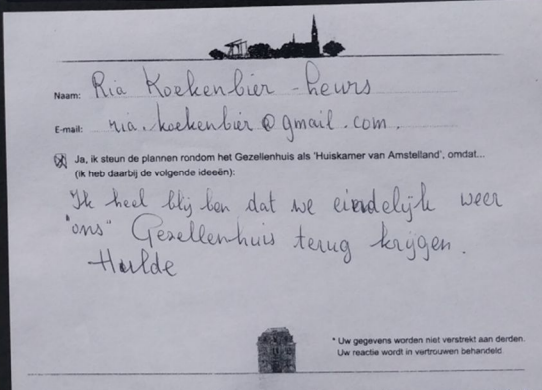 Naam: Ria Koekenbier - Leurs
E-mail: ria.koekenbier@gmail.com.
Ja, ik steun de plannen rondom het Gezellenhuis als 'Huiskamer van Amstelland', omdat...
(ik heb daarbij de volgende ideeën):
Ik heel blij ben dat we eindelijk weer
"ons" Gezellenhuis terug krijgen.
Hulde
* Uw gegevens worden niet verstrekt aan derden.
Uw reactie wordt in vertrouwen behandeld.